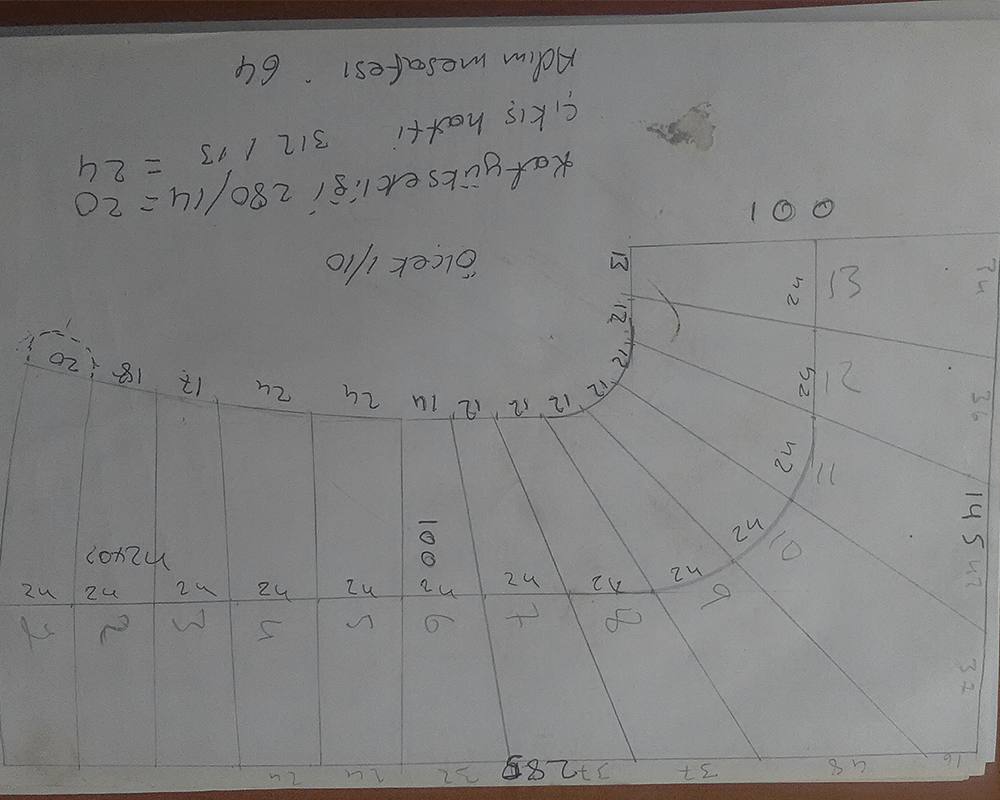 Adım mesafesi : 64
çıkış hattı 312 / 13 = 24
Kat yüksekliği 280/14 = 20
Ölçek 1/10
100
13 12 12 12 12 12 12 14 24 24 17 18 20
42 42 42 42 42
13 12 11 10 9 8 7 6 5 4 3 2 1
24 24 24 24 24 24 24 24
100
74 36 145 42 37
16 48 37 37 285 32 24 24